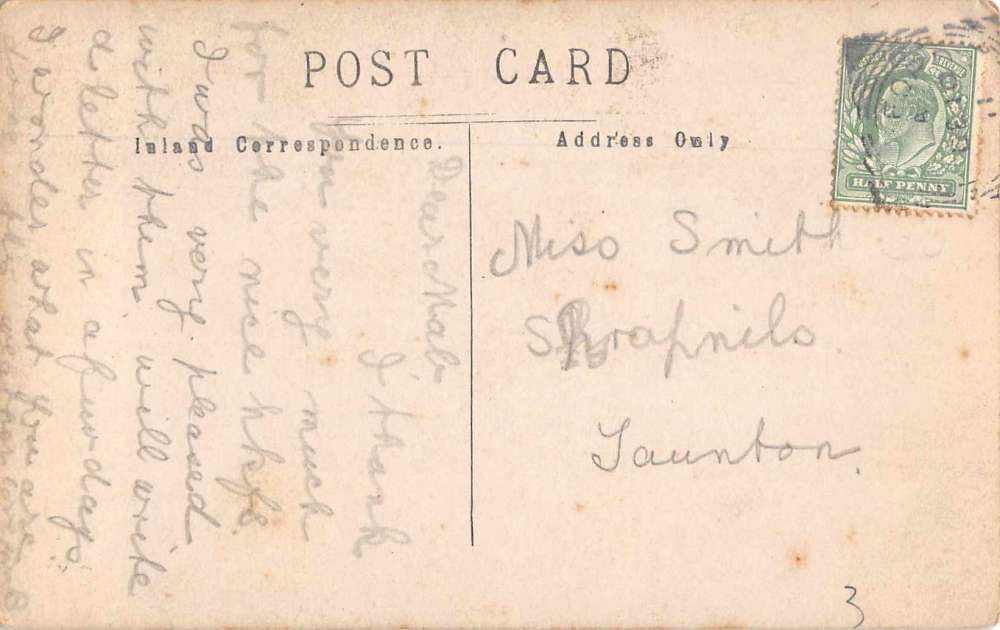 POST CARD
Inland Correspondence.
Address Only
HALF PENNY
Dear Mab
I thank
you very much
for the nice hkfs.
I was very pleased
with them will write
a letter in a few days.
I wonder what you are
Miss Smith
Taunton.
3